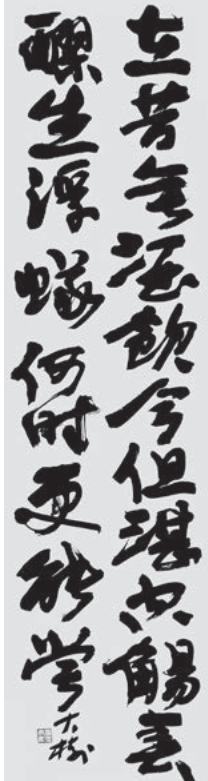 在昔無酒飲今但湛空觴春
醪生浮蟻何时更能嘗
大樹